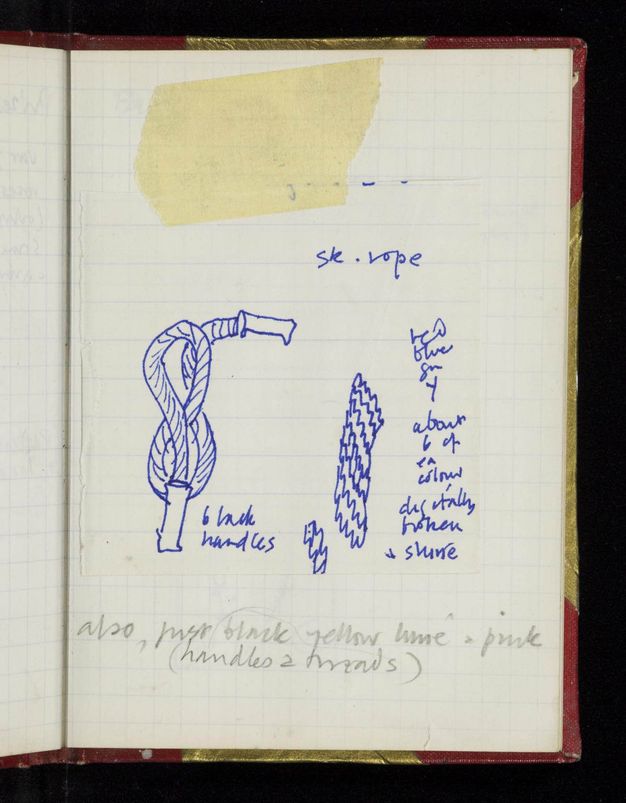 sk. rope
red
blue
gn
y
about
6 of
ea
colour
digitally
broken
+ shine
black
handles
also, just black yellow lime + pink
(handles & threads)